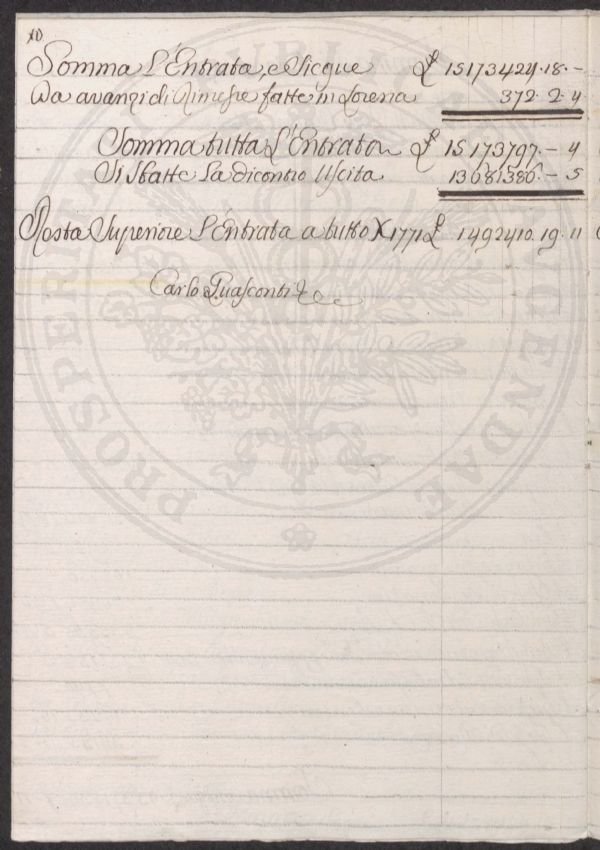 10
Somma L'Entrata, e Siegue £ 15173424.18.-
Da avanzi di Rimesse fatte in Lorena 372.2.4
Somma tutta L'Entrata £ 15173797.-4
Si Sbatte La dicontro Uscita 13681386.-5
Resta Superiore L'Entrata a tutto X 1771 £ 1492410.19.11
Carlo Guasconti